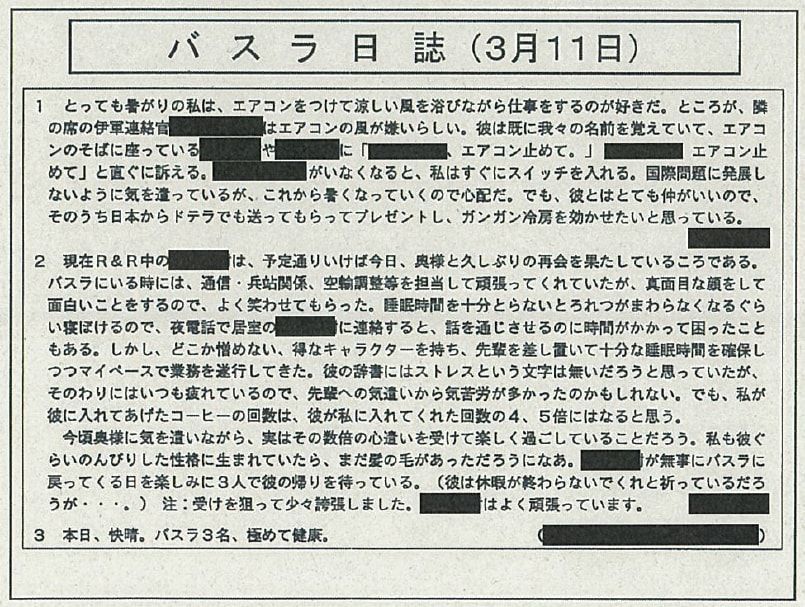 バスラ日誌（3月11日）
1　とっても暑がりの私は、エアコンをつけて涼しい風を浴びながら仕事をするのが好きだ。ところが、隣
の席の伊軍連絡官はエアコンの風が嫌いらしい。彼は既に我々の名前を覚えていて、エアコ
ンのそばに座っているやに「、エアコン止めて。」　エアコン止
めて」と直ぐに訴える。がいなくなると、私はすぐにスイッチを入れる。国際問題に発展し
ないように気を遣っているが、これから暑くなっていくので心配だ。でも、彼とはとても仲がいいので、
そのうち日本からドテラでも送ってもらってプレゼントし、ガンガン冷房を効かせたいと思っている。
2　現在R＆R中のは、予定通りいけば今日、奥様と久しぶりの再会を果たしているころである。
バスラにいる時には、通信・兵站関係、空輸調整等を担当して頑張ってくれていたが、真面目な顔をして
面白いことをするので、よく笑わせてもらった。睡眠時間を十分とらないとろれつがまわらなくなるぐら
い寝ぼけるので、夜電話で居室のに連絡すると、話を通じさせるのに時間がかかって困ったこと
もある。しかし、どこか憎めない、得なキャラクターを持ち、先輩を差し置いて十分な睡眠時間を確保し
つつマイペースで業務を遂行してきた。彼の辞書にはストレスという文字は無いだろうと思っていたが、
そのわりにはいつも疲れているので、先輩への気遣いから気苦労が多かったのかもしれない。でも、私が
彼に入れてあげたコーヒーの回数は、彼が私に入れてくれた回数の4、5倍にはなると思う。
今頃奥様に気を遣いながら、実はその数倍の心遣いを受けて楽しく過ごしていることだろう。私も彼ぐ
らいのんびりした性格に生まれていたら、まだ髪の毛があっただろうになあ。が無事にバスラに
戻ってくる日を楽しみに3人で彼の帰りを待っている。（彼は休暇が終わらないでくれと祈っているだろ
うが・・・。）　注：受けを狙って少々誇張しました。はよく頑張っています。
3　本日、快晴。バスラ3名、極めて健康。（）